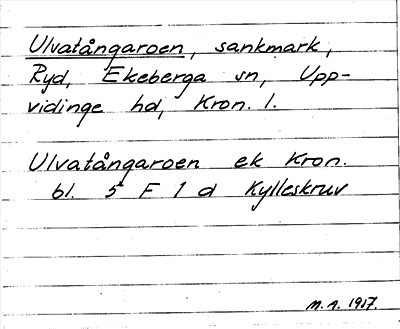 Ulvatångaroen, sankmark,
Ryd, Ekeberga sn, Upp-
vidinge hd, Kron. l.
Ulvatångaroen ek Kron.
bl. 5 F 1 d Kylleskruv
M.A. 1917.